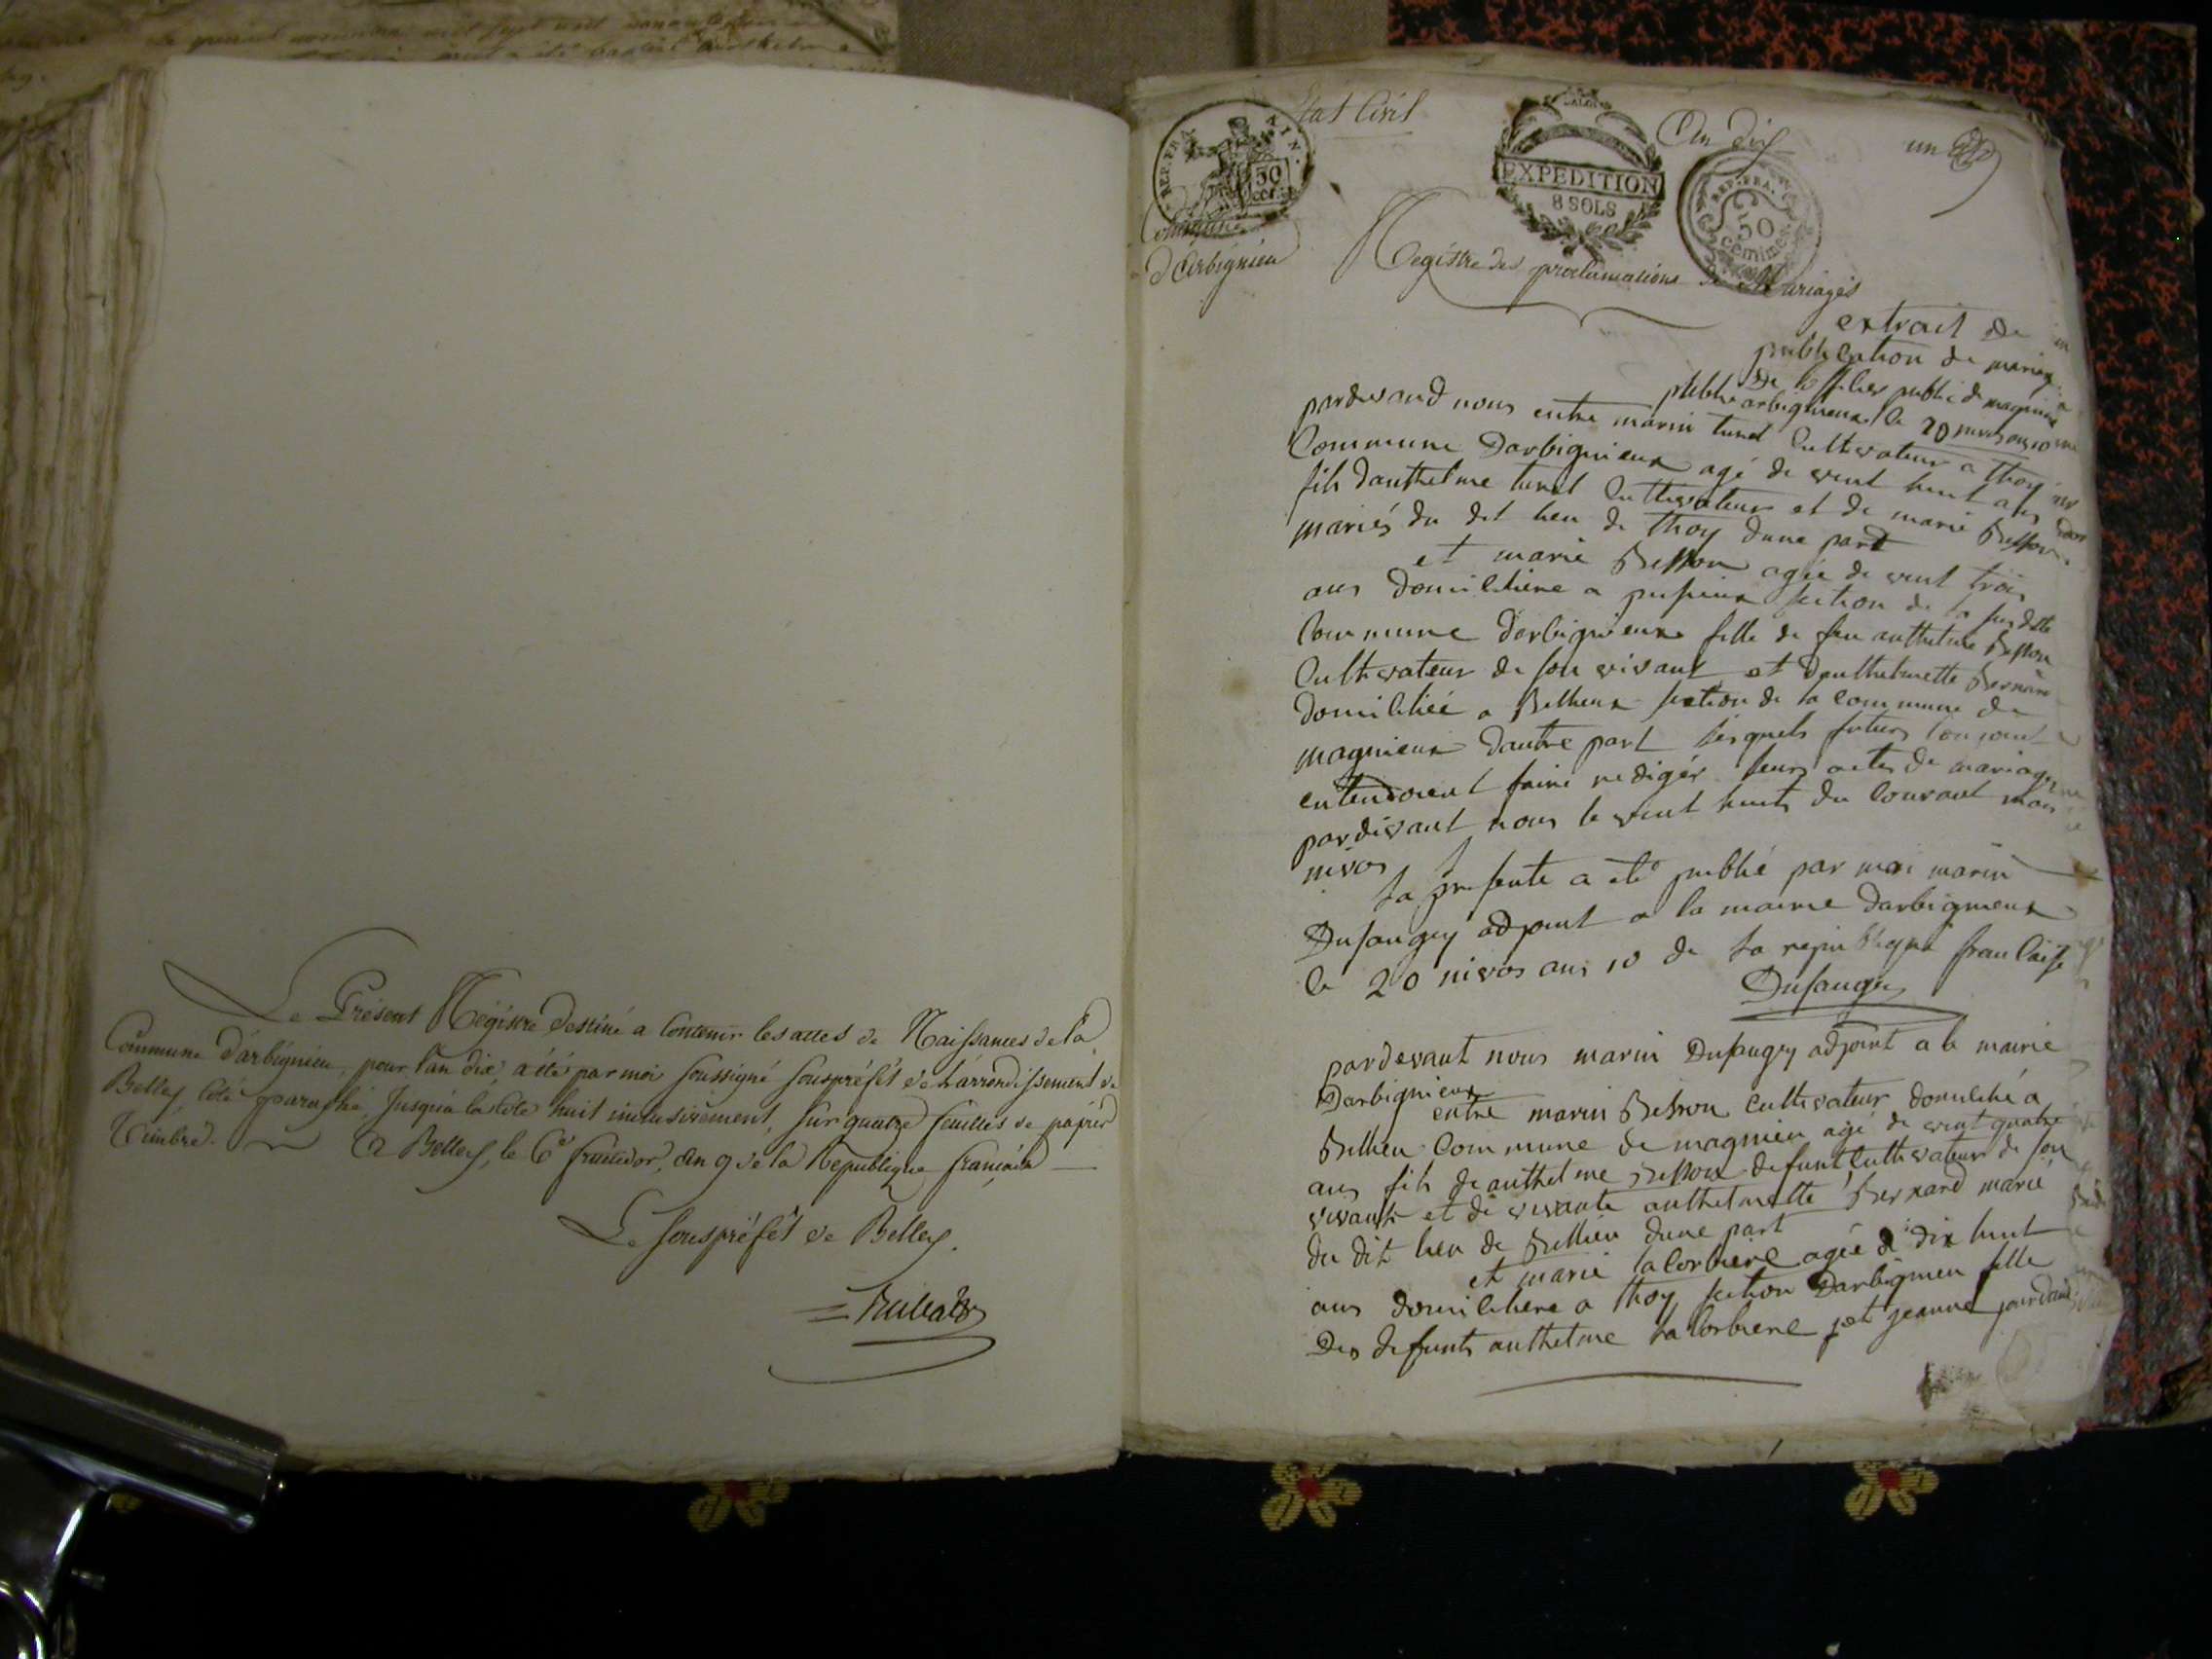 Le Présent Régistre destiné a Contenir les actes de Naissances de la
Commune d'arbignieu, pour l'an dix, a été par moi soussigné souspréfét de l'arrondissement de
Belley, coté paraphé, jusqu'a la cote huit inclusivement, sur quatre feuilles de papier
timbré. A Belley, le 6e fructidor, an 9 de la Republique française
Le souspréfét de Belley.
Etat Civil
An dix
un
REP. FRA
AIN.
50
EXPEDITION
8 SOLS
REP. FRA.
50
centimes
Commune
d'Arbignieu
Registre des proclamations de Mariages
extrait de
publication de mariage
de l'officier public de magnieu
publié arbignieux le 20 nivos an 10
pardevand nous entre marin tunel Cultivateur a thoy
Commune Darbignieux agé de vint huit ans
fils danthelme tunel Cultivateur et de marie Besson
mariés du dit lieu de thoy dune part
et marie Besson agée de vint trois
ans domiciliere a section de la susditte
Commune darbignieux fille de feu anthelme Besson
Cultivateur de son vivant et danthelmette Bernard
domiciliée a Billieux section de la commune de
magnieux dautre part lesquels futurs conjoint
entendoient faire redigér leurs actes de mariage
pardevant nous le vint huit du Courant mois
nivos
la presente a été publié par moi marin
Dusaugey adjoint a la mairie darbignieux
le 20 nivos an 10 de la republique francaise
Dusaugey
pardevant nous marin Dusaugey adjoint a la mairie
Darbignieux
entre marin Besson cultivateur domicilié a
Billieu Commune de magnieu agé de vint quatre
ans fils de anthelme Besson defunt Cultivateur de son
vivant et de vivante anthelmette Bernard marié
du dit lieu de Billieu dune part
et marie la Corbiere agée de dix huit
ans domiciliere a thoy section Darbignieu fille
des defunts anthelme la Corbiere et jeanne jourdan